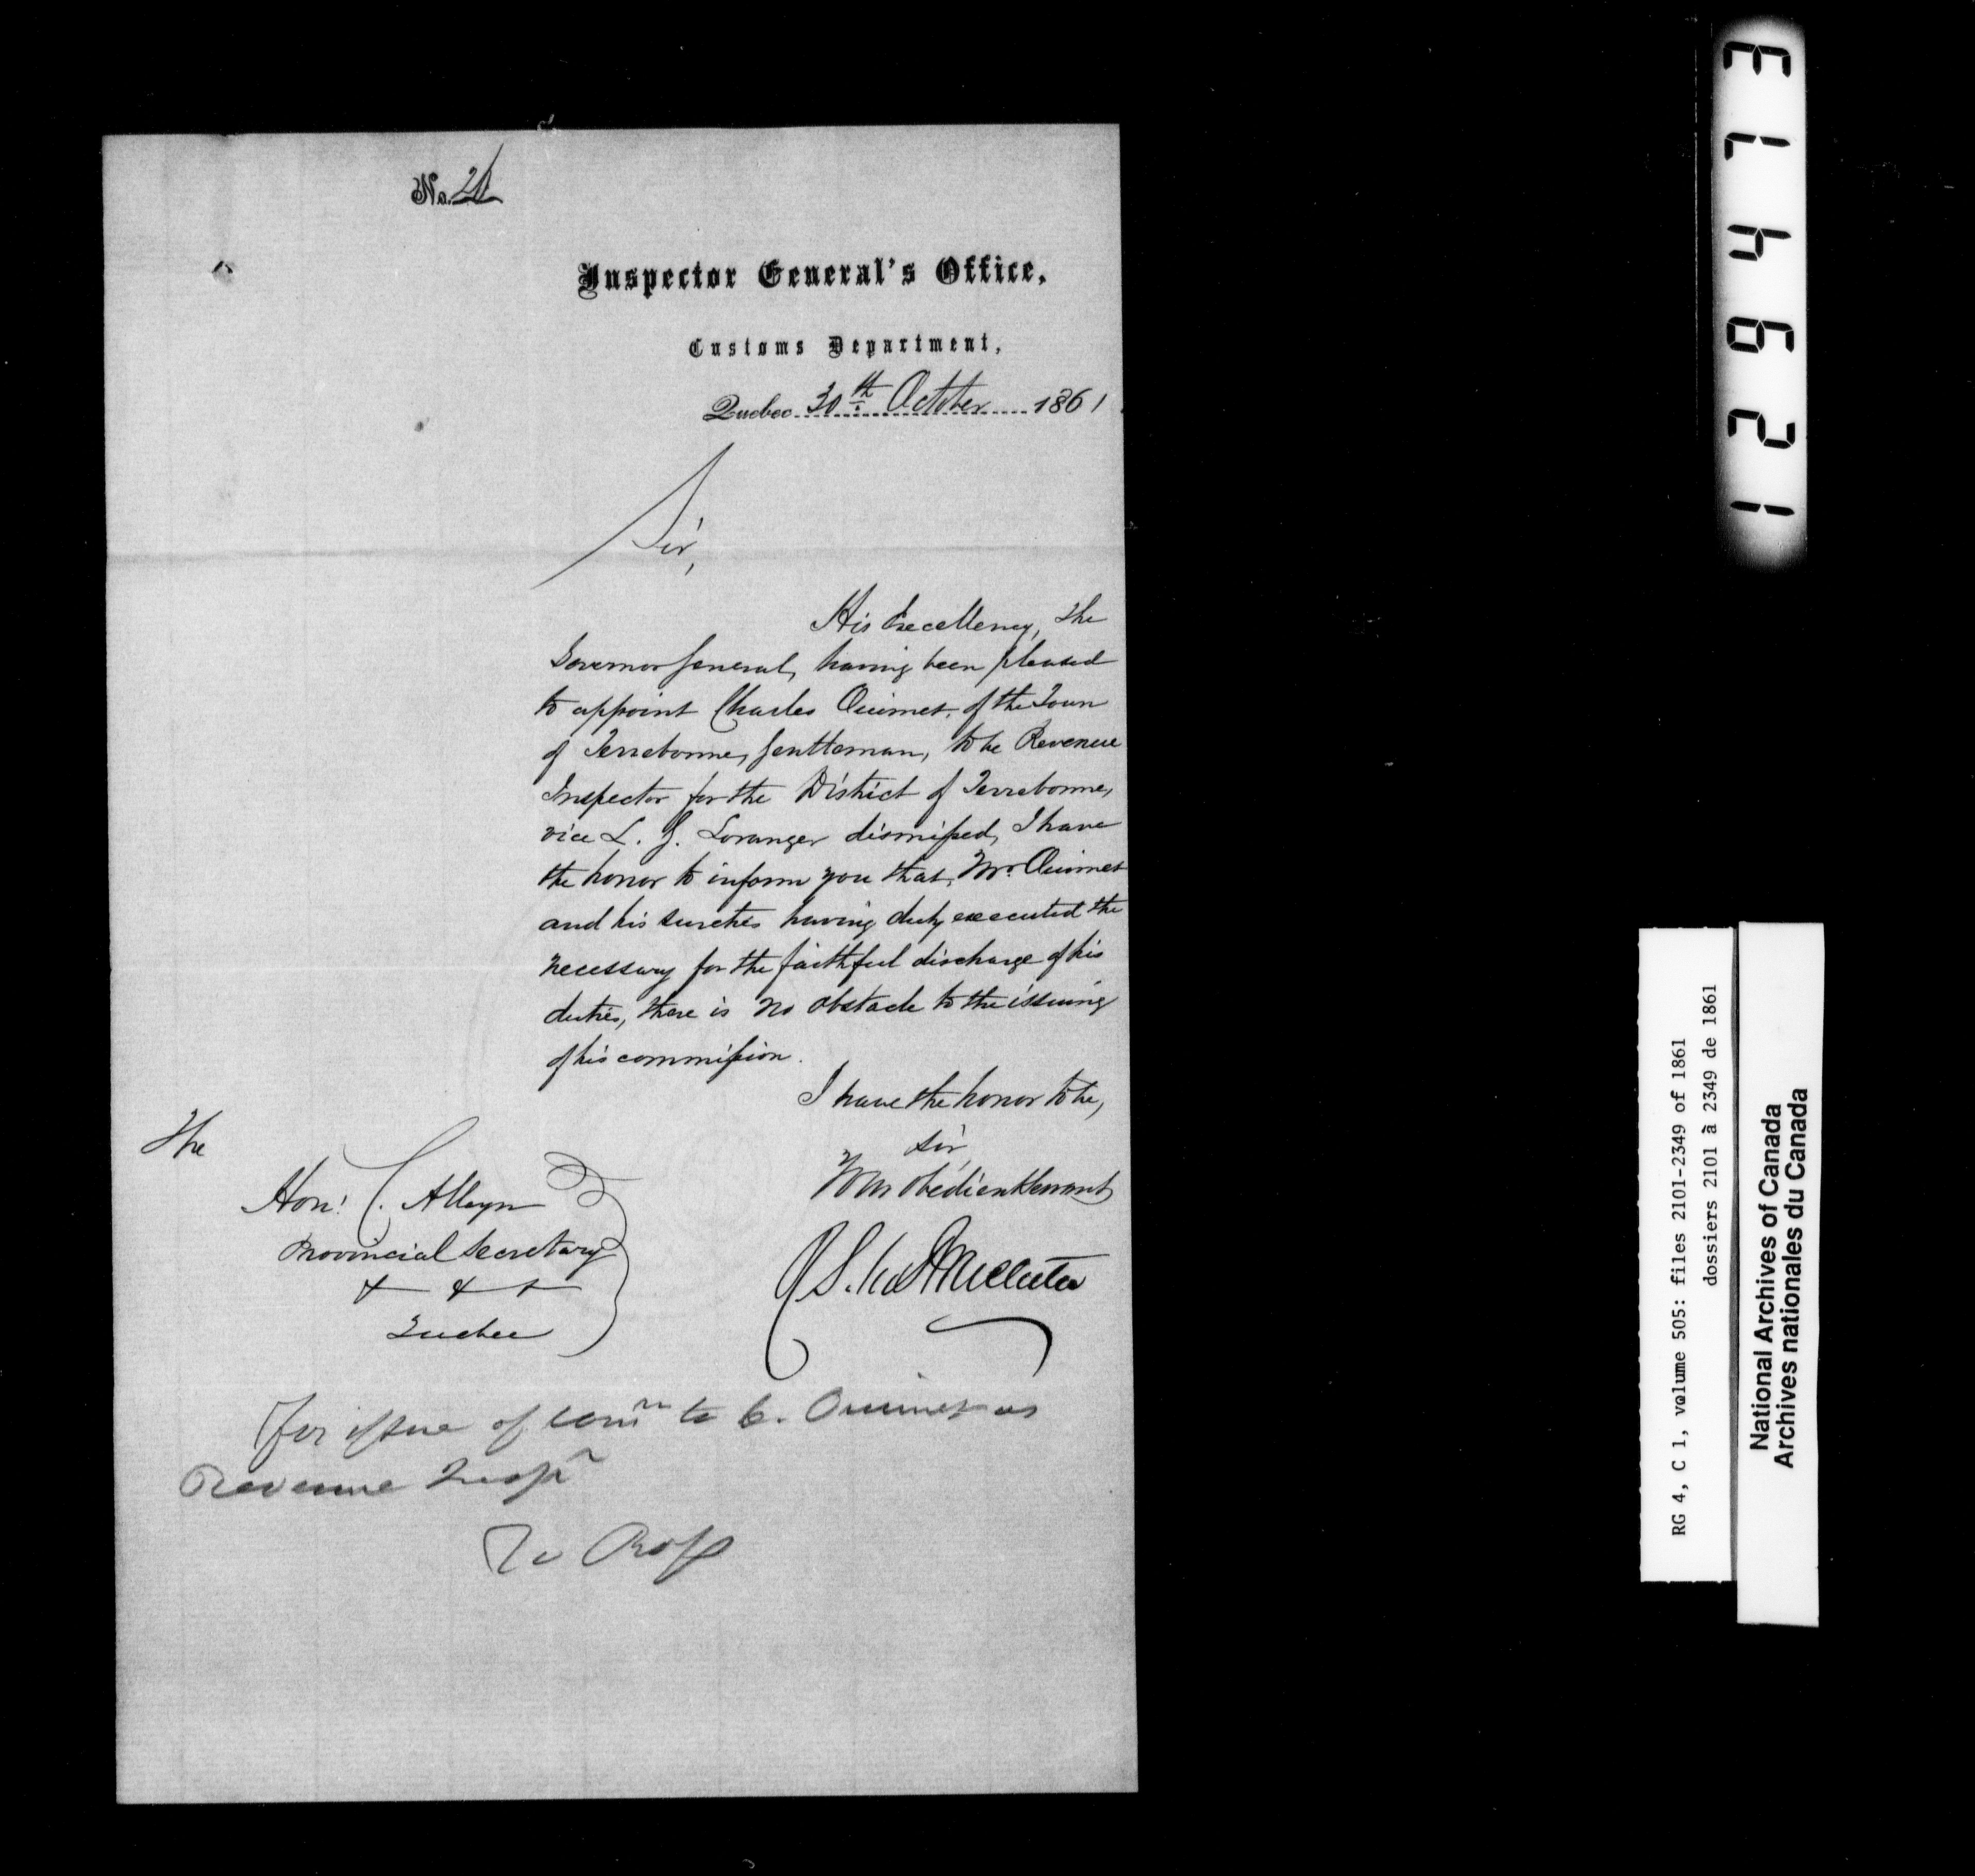 No. 21
Inspector General's Office,
Customs Department,
Quebec 30th October 1861
Sir,
His Excellency, the
Governor General, having been pleased
to appoint Charles Ouimet, of the Town
of Terrebonne, Gentleman, to be Revenue
Inspector for the District of Terrebonne,
vice L. G. Loranger dismissed, I have
the honor to inform you that, Mr. Ouimet
and his sureties having duly executed the
necessary for the faithful discharge of his
duties, there is no obstacle to the issuing
of his commission.
I have the honor to be,
Sir,
Your obedient Servant
The
Hon: C. Alleyn
Provincial Secretary
& & &
Quebec
For issue of Comn to C. Ouimet as
Revenue Inspr
1294713
RG 4, C 1, volume 505: files 2101-2349 of 1861
dossiers 2101 à 2349 de 1861
National Archives of Canada
Archives nationales du Canada